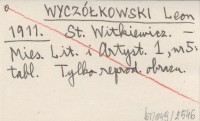 WYCZÓŁKOWSKI Leon
1911. St. Witkiewicz. —
Mies. Lit. i Artyst. 1, nr 5:
tabl. Tylko reprod. obrazu.